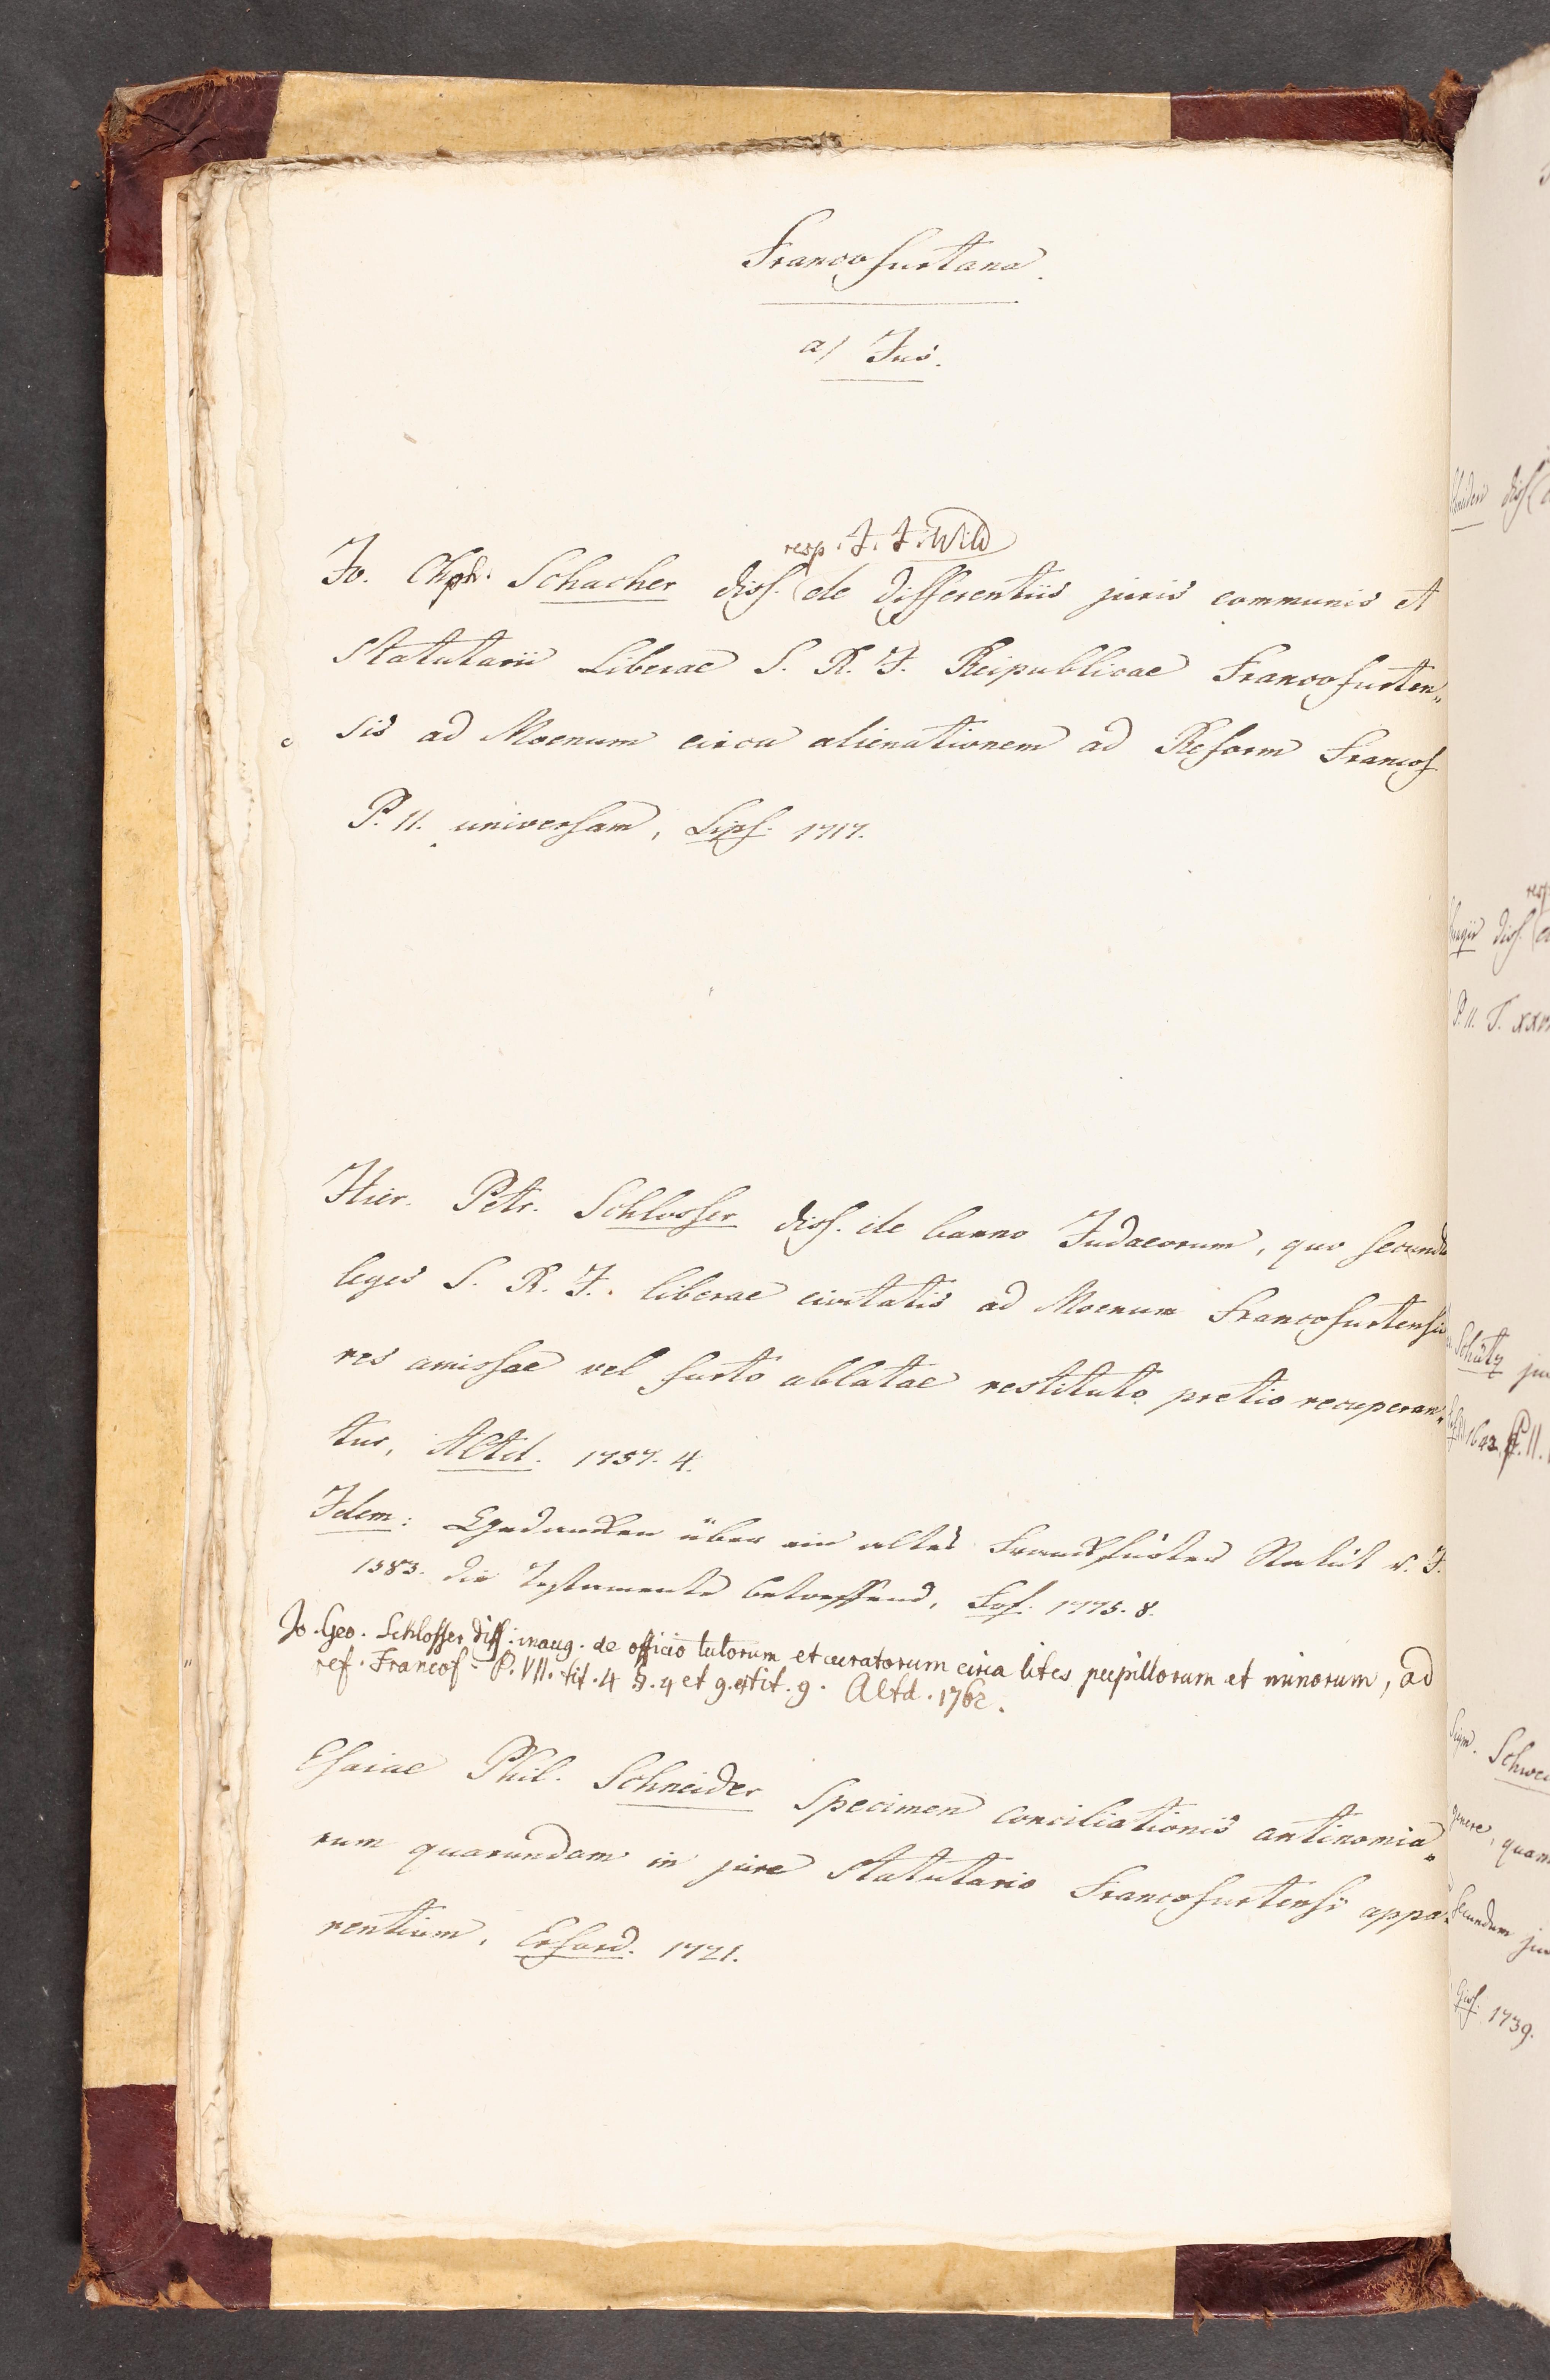 Francofurtana.
a/ Jus.
resp. J. J. Wild
Jo. Chph. Schacher diss. de differentiis juris communis et
statutarii Liberae S. R. J. Reipublicae Francofurten„
sis ad Moenum circa alienationem ad Reform Francof
P. II. universam, Lips. 1717.
Hier. Petr. Schlosser diss. de banno Judaeorum, quo secund
leges S. R. J. liberae civitatis ad Moenum Francofurtensis
res amissae vel furto ablatae restituto pretio recuperan„
tur, Altd. 1757. 4.
Idem: Gedanken über ein altes Frankfurter Statut v. J.
1583. die Testamente betreffend, Fof. 1775. 8.
Jo. Geo. Schlosser diss. inaug. de officio tutorum et curatorum circa lites pupillorum et minorum, ad
ref. Francof. P. VII. tit. 4 §. 4 et 9. et tit. 9. Altd. 1762.
Esaiae Phil. Schneider Specimen conciliationis antinomia„
rum quarundam in jure statutario Francofurtensi appa„
rentium, Erford. 1721.
diss.
resp
diss.
P. II. T.
Schütz
1642. P. II.
genere, quam
secundum
Gies. 1739.